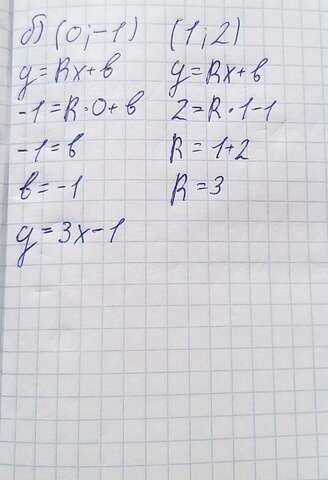 б) (0;-1) (1;2)
y=kx+b y=kx+b
-1=k·0+b 2=k·1-1
-1=b k=1+2
b=-1 k=3
y=3x-1